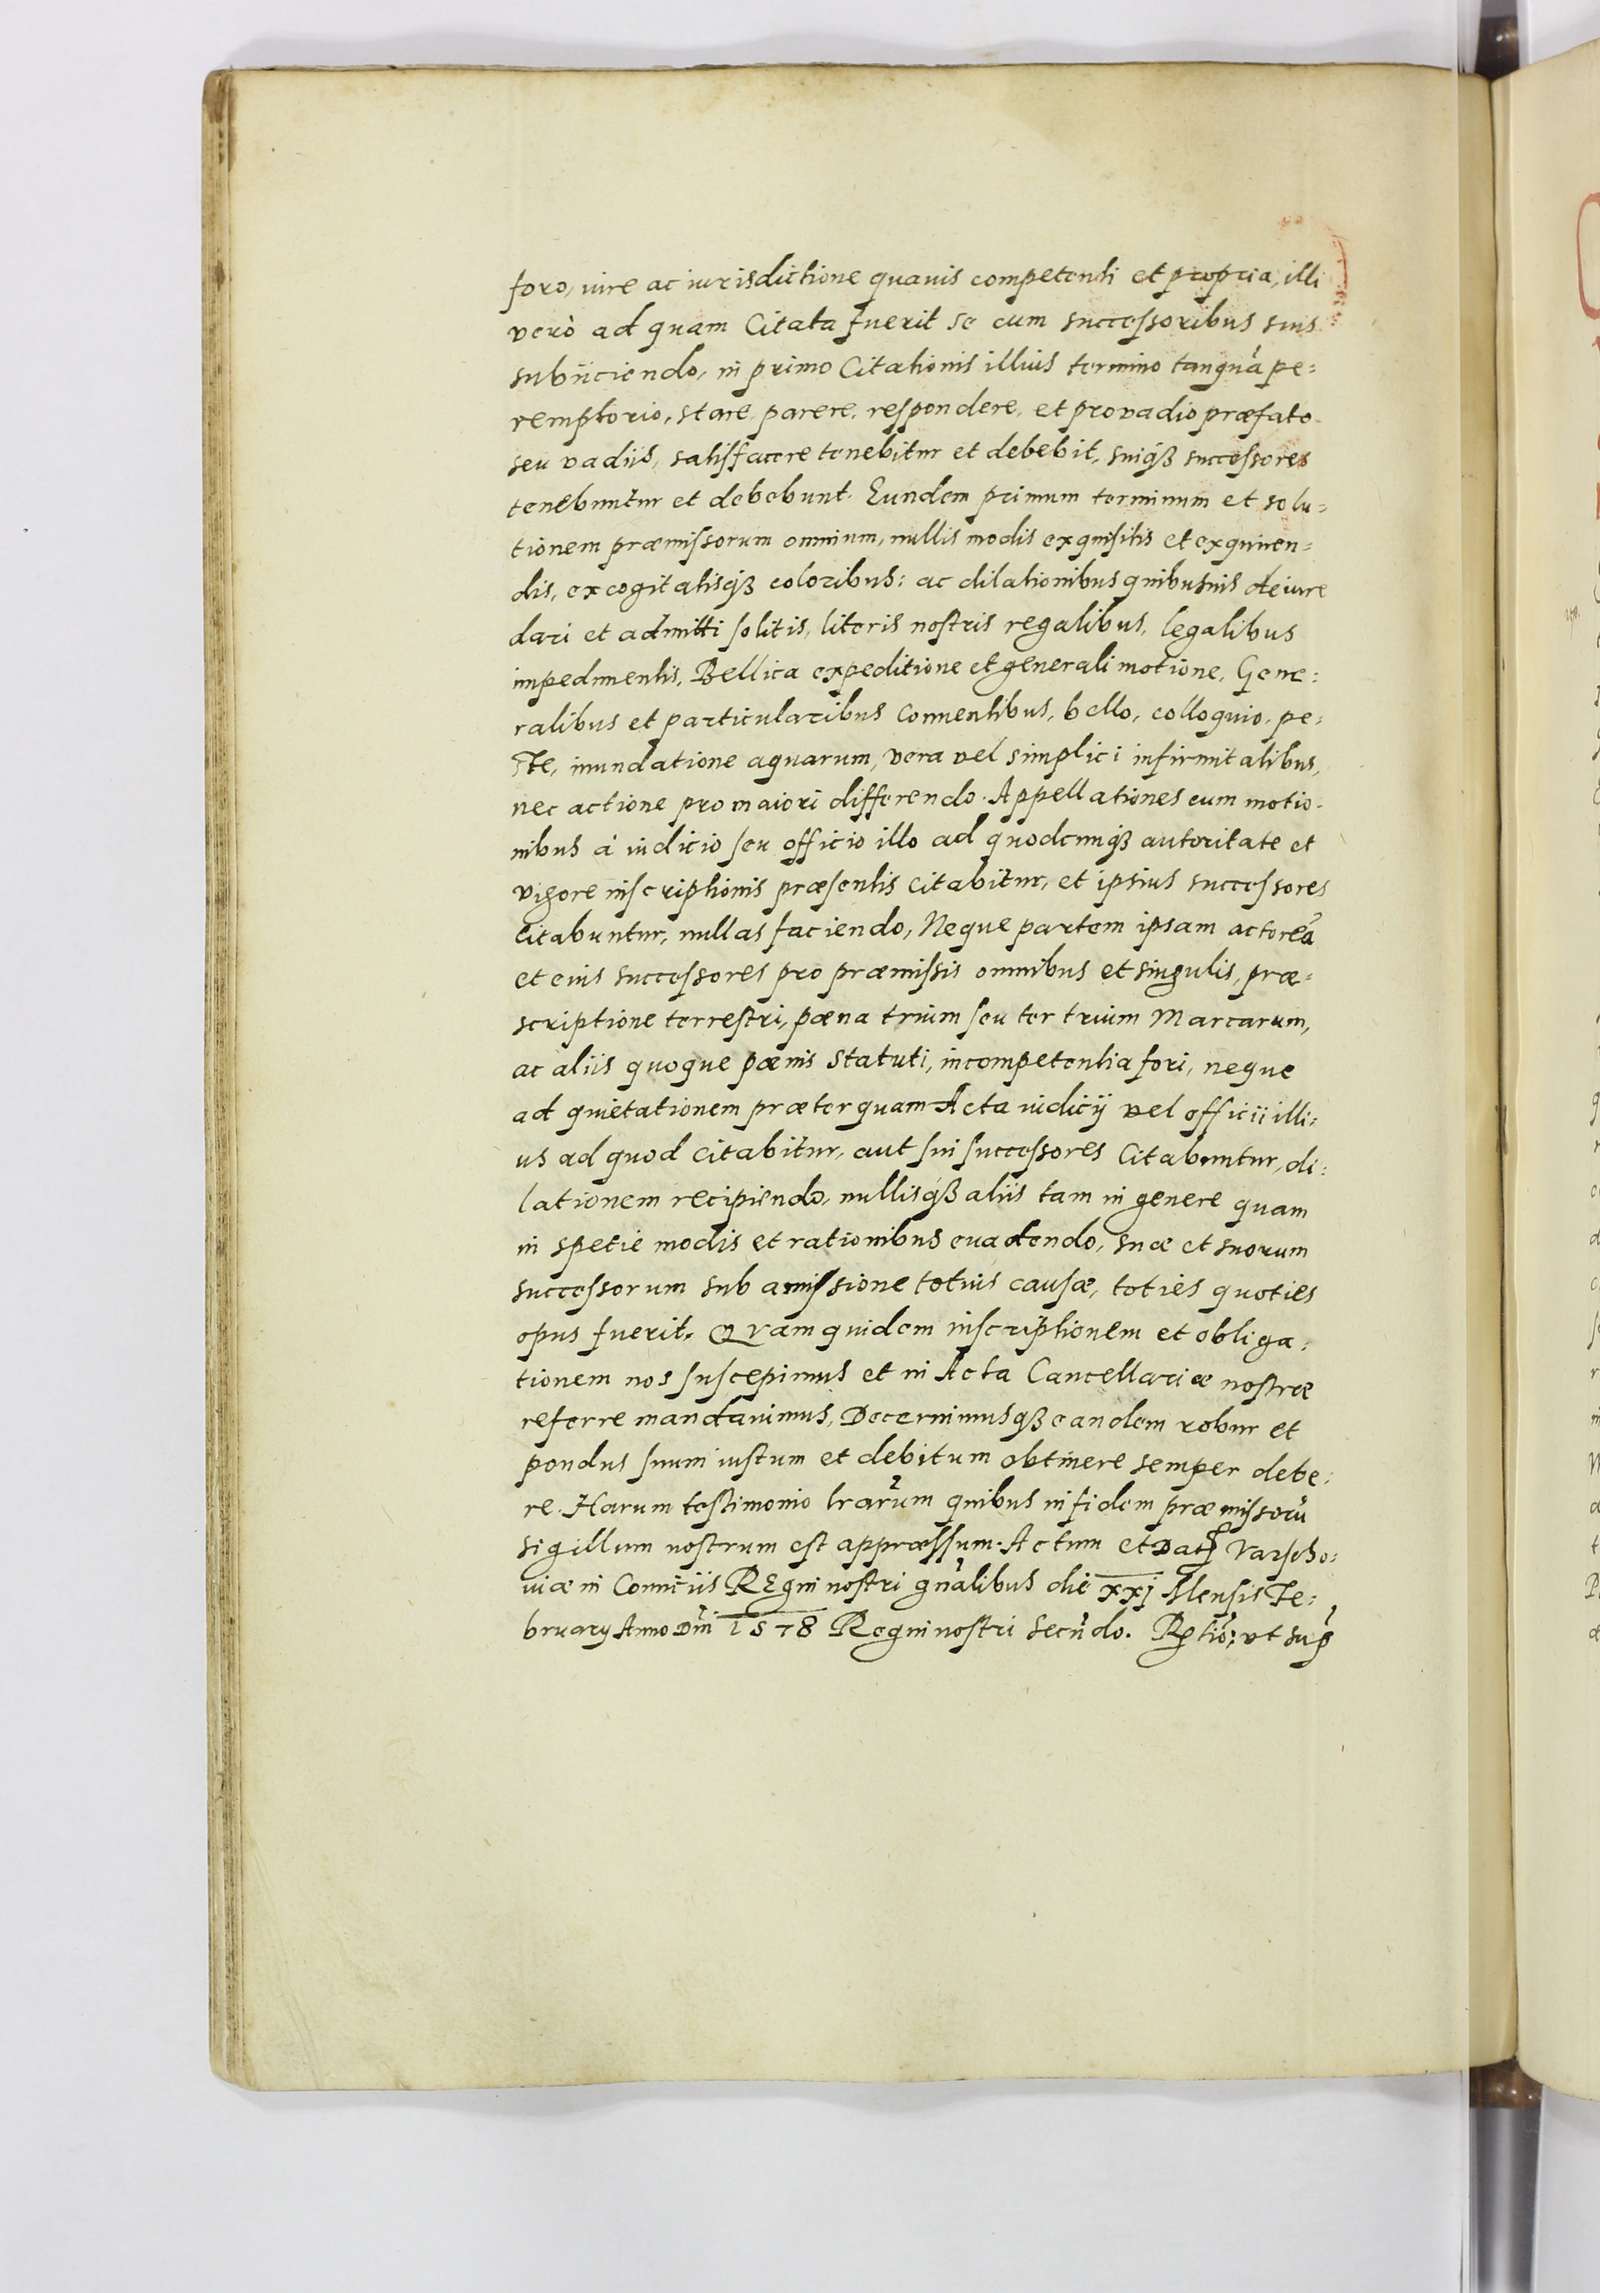 foro, iure ac iurisdictione quauis competenti et propria, illi
verò ad quam Citata fuerit se cum successoribus suis
subiiciendo, in primo Citationis illius termino tanquā pe=
remptorio, stare, parere, respondere, et pro vadio præfato
seu vadiis, satisfacere tenebitur et debebit, suiq₃ successores
tenebuntur et debebunt. Eundem primum terminum et solu=
tionem præmissorum omnium, nullis modis exquisitis et exquiren=
dis, excogitatisq₃ coloribus: ac dilationibus quibusuis de iure
dari et admitti solitis, literis nostris regalibus, legalibus
impedimentis, Bellica expeditione et generali motione, Gene=
ralibus et particularibus Conuentibus, bello, colloquio, pe=
ste, inundatione aquarum, vera vel simplici infirmitatibus,
nec actione pro maiori differendo. Appellationes cum motio=
nibus à iudicio seu officio illo ad quodcunq₃ autoritate et
vigore inscriptionis præsentis citabitur, et ipsius successores
citabuntur, nullas faciendo, Neque partem ipsam actoreā
et eius successores pro præmissis omnibus et singulis, præ=
scriptione terrestri, pæna trium seu ter trium Marcarum,
ac aliis quoque pænis statuti, incompetentia fori, neque
ad quietationem præterquam Acta iudicij vel officii illi=
us ad quod citabitur, aut sui successores Citabuntur, di=
lationem recipiendo, nullisq₃ aliis tam in genere quam
in spetie modis et rationibus euadendo, suæ et suorum
successorum sub amissione totius causæ, toties quoties
opus fuerit. Quam quidem inscriptionem et obliga=
tionem nos suscepimus et in Acta Cancellariæ nostræ
referre mandauimus, Decernimusq₃ eandem robur et
pondus suum iustum et debitum obtinere semper debe=
re. Harum testimonio lrarum quibus in fidem præmissorū
sigillum nostrum est appræssum. Actum et Dat Varscho=
uiæ in Comitiis REgni nostri gnālibus die xxj Mensis Fe=
bruary Anno Dm̄i 1578 Regni nostri secūdo. Rptio: vt sup